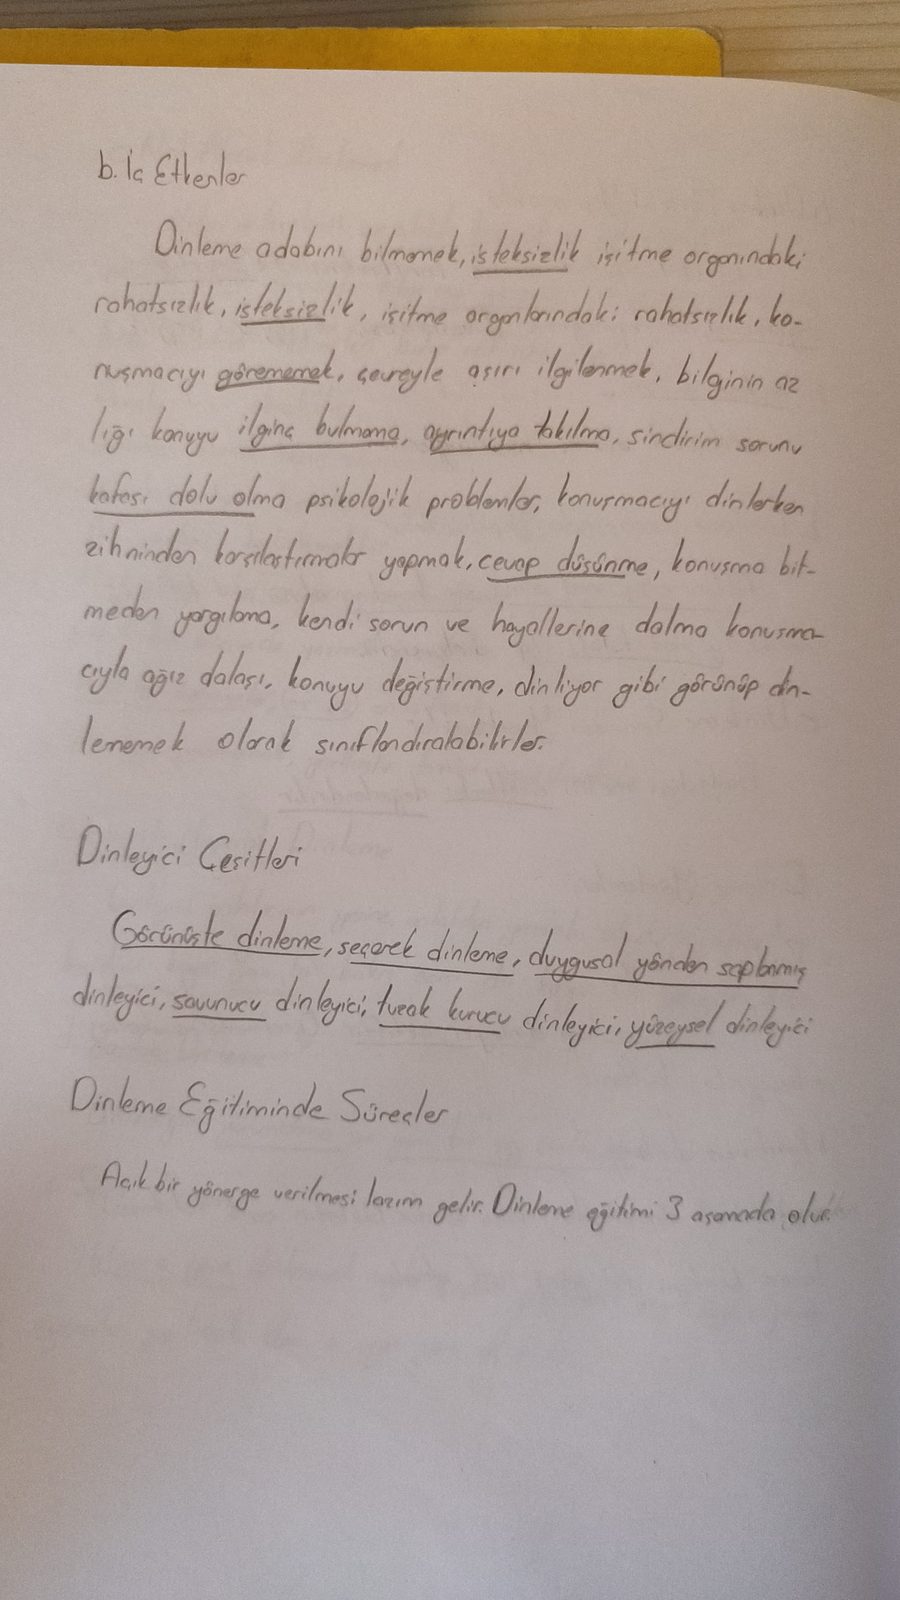 b. İç Etkenler
Dinleme adabını bilmemek, isteksizlik işitme organındaki
rahatsızlık, isteksizlik, işitme organlarındaki rahatsızlık, ko-
nuşmacıyı görememek, çevreyle aşırı ilgilenmek, bilginin az
lığı konuyu ilginç bulmama, ayrıntıya takılma, sindirim sorunu
kafası dolu olma psikolojik problemler, konuşmacıyı dinlerken
zihninden karşılaştırmalar yapmak, cevap düşünme, konuşma bit-
meden yargılama, kendi sorun ve hayallerine dalma konuşma-
cıyla ağız dalaşı, konuyu değiştirme, dinliyor gibi görünüp din-
lememek olarak sınıflandıralabilirler.
Dinleyici Çeşitleri
Görünüşte dinleme, seçerek dinleme, duygusal yönden saplanmış
dinleyici, savunucu dinleyici, tuzak kurucu dinleyici, yüzeysel dinleyici
Dinleme Eğitiminde Süreçler
Açık bir yönerge verilmesi lazım gelir. Dinleme eğitimi 3 aşamada olur.